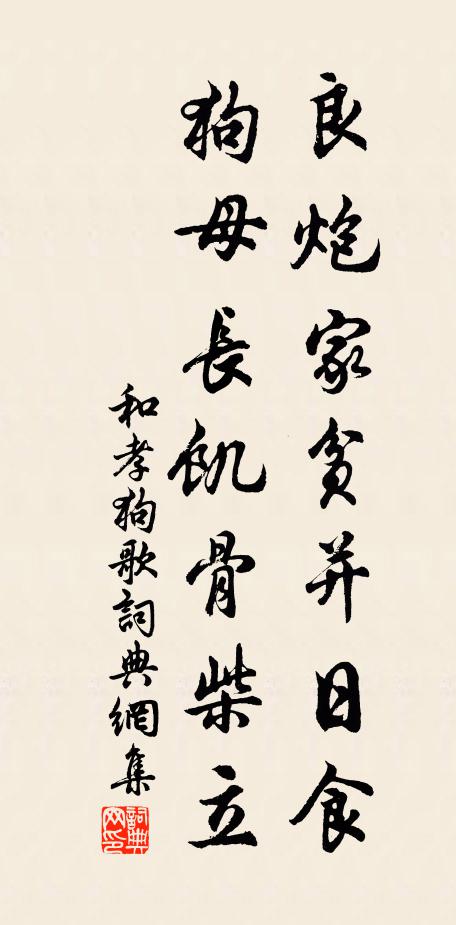 良炮家貧并日食
狗母長飢骨柴立
和孝狗歌詞典網集
詞典网印